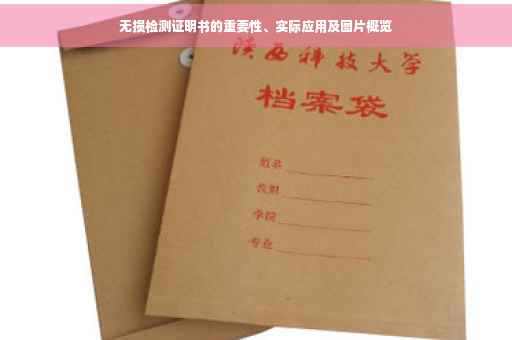 无损检测证明书的重要性、实际应用及图片概览
陕西科技大学
档案袋
学院
专业